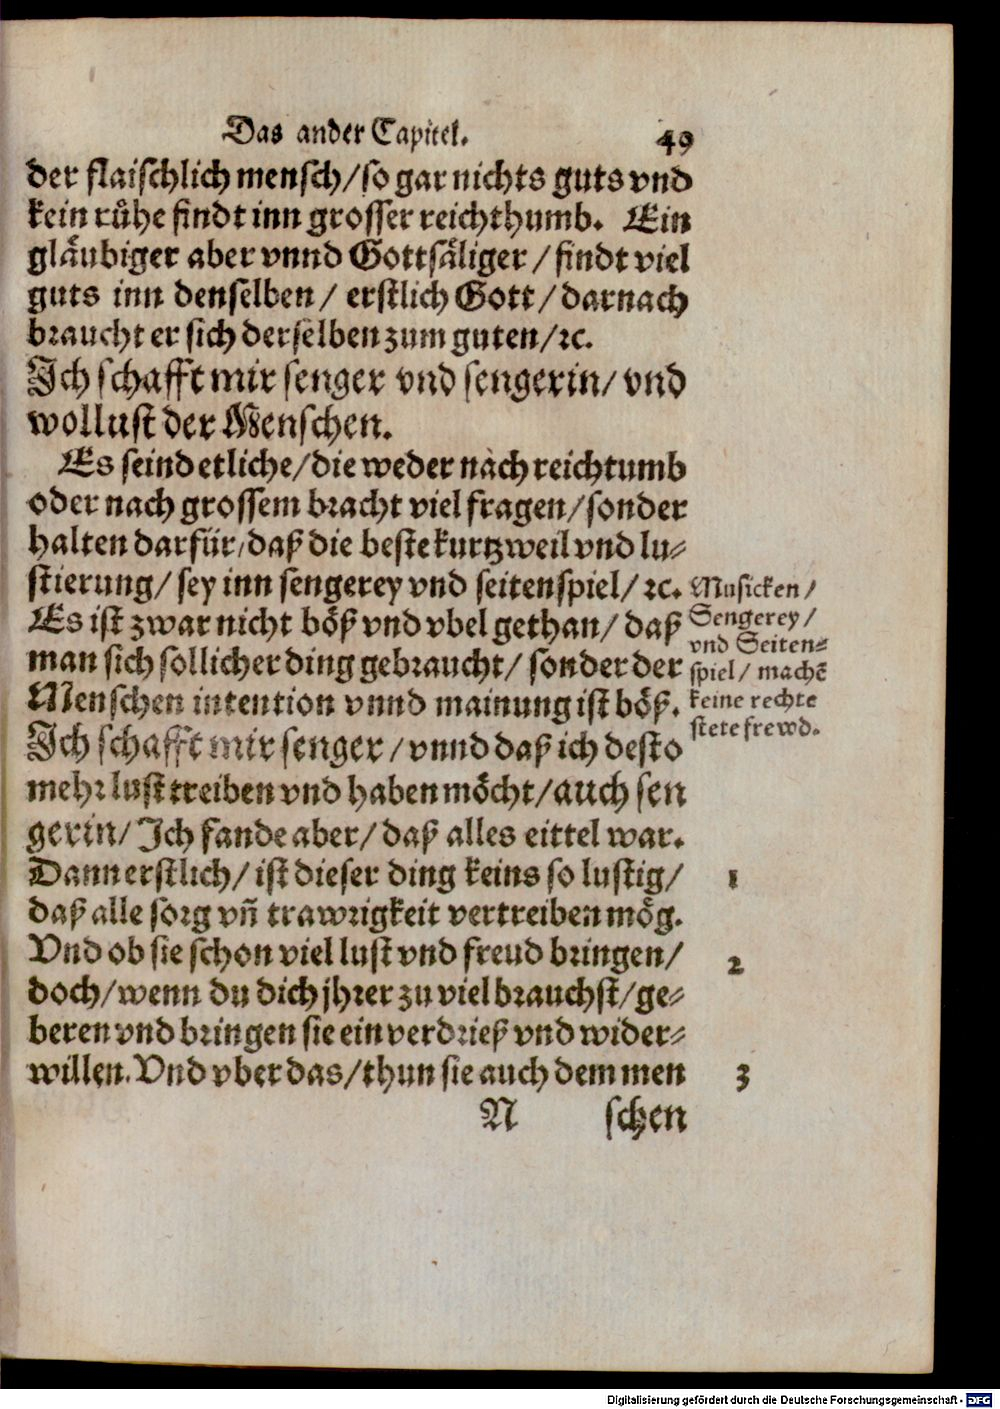 Das ander Capitel. 49
der flaischlich mensch/so gar nichts guts vnd
kein růhe findt inn grosser reichthumb. Ein
gläubiger aber vnnd Gottsäliger/findt viel
guts inn denselben/ erstlich Gott/darnach
braucht er sich derselben zum guten/ꝛc.
Ich schafft mir senger vnd sengerin/ vnd
wollust der Menschen.
Es seind etliche/die weder nach reichtumb
oder nach grossem bracht viel fragen/sonder
halten darfür/daß die beste kurtzweil vnd lu⸗
stierung/ sey inn sengerey vnd seitenspiel/ ꝛc.
Es ist zwar nicht böß vnd vbel gethan/ daß
man sich sollicher ding gebraucht/ sonder der
Menschen intention vnnd mainung ist böß.
Musicken/
Sengerey/
vnd Seiten⸗
spiel/ machē
keine rechte
stete frewd.
Ich schafft mir senger/vnnd daß ich desto
mehr lust treiben vnd haben möcht/auch sen
gerin/ Ich fande aber/ daß alles eittel war.
Dann erstlich/ ist dieser ding keins so lustig/ 1
daß alle sorg vñ trawrigkeit vertreiben mög.
Vnd ob sie schon viel lust vnd freud bringen/ 2
doch/wenn du dich jhrer zu viel brauchst/ge⸗
beren vnd bringen sie ein verdrieß vnd wider⸗
willen. Vnd vber das/thun sie auch dem men 3
N schen
Digitalisierung gefördert durch die Deutsche Forschungsgemeinschaft - DFG